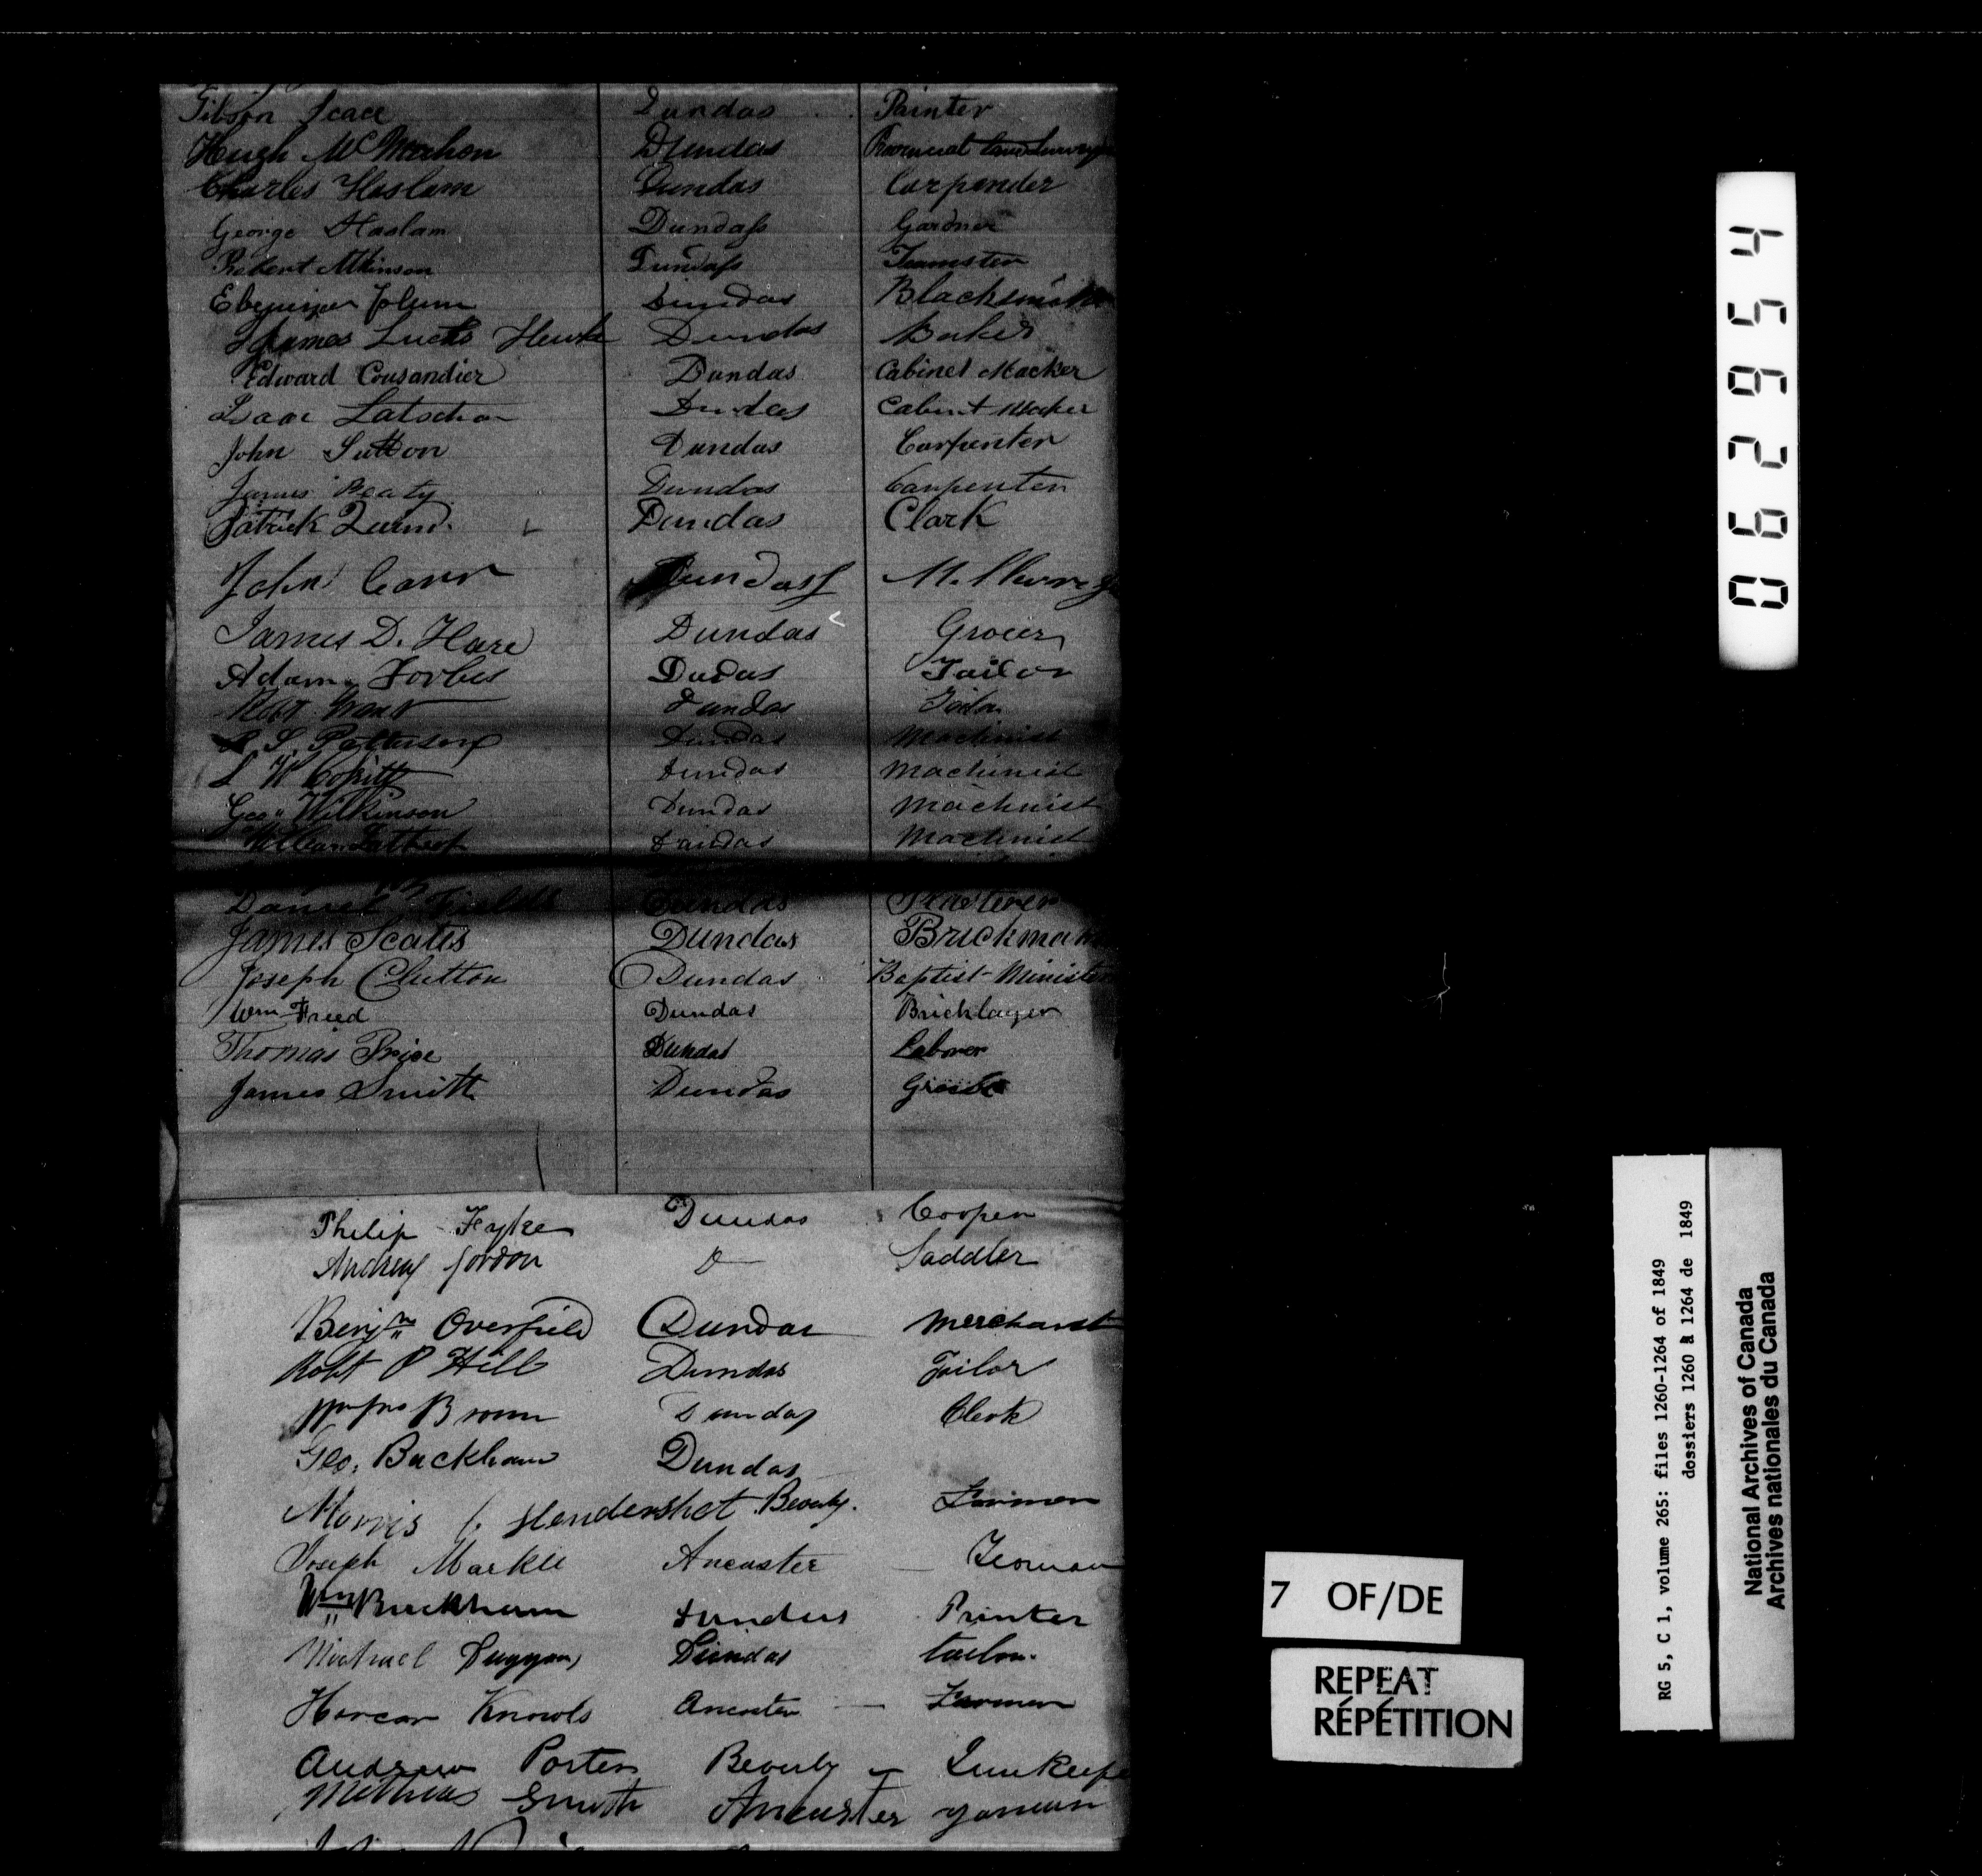 Gibson Scace Dundas Painter
Hugh McMahon Dundas Provincial Land Surveyor
Charles Haslam Dundas Carpender
George Haslam Dundass Gardner
Robert Atkinson Dundass Teamster
Dundas Blacksmith
James Dundas Baker
Edward Cousandier Dundas Cabinet Macker
Isaac Latschar Dundas Cabinet Maker
John Sutton Dundas Carpenter
James Beaty Dundas Carpenter
Patrick Quinn Dundas Clark
John Carr Dundass
James D. Hare Dundas Grocer
Adam Forbes Dudas Tailor
Robt Grant Dundas Tailor
S. Patterson Dundas Machinist
Dundas Machinist
Geo Wilkinson Dundas Machnist
Dundas Machnist
Daniel Fields Dundas Plasterer
James Scates Dundas Brickmaker
Joseph Clutton Dundas Baptist Minister
Wm Freed Dundas Bricklayer
Thomas Price Dundas Laborer
James Smith Dundas
Philip Fayke Dundas Cooper
Andrew Gordon Saddler
Benjn Overfield Dundas Merchant
Robt P Hill Dundas Tailor
Wm Jno Brown Dundas Clerk
Geo. Buckham Dundas
Morris C. Hendershot Beverly. Farmer
Joseph Markle Ancaster — Yeoman
Wm Buckham Dundas Printer
Michael Duggan Dundas tailor.
Knowls Ancaster — Farmer
Andrew Porter Beverly — Innkeeper
Mathias Smith Ancaster yoman
062954
7 OF/DE
REPEAT
RÉPÉTITION
RG 5, C 1, volume 265: files 1260-1264 of 1849
dossiers 1260 à 1264 de 1849
National Archives of Canada
Archives nationales du Canada